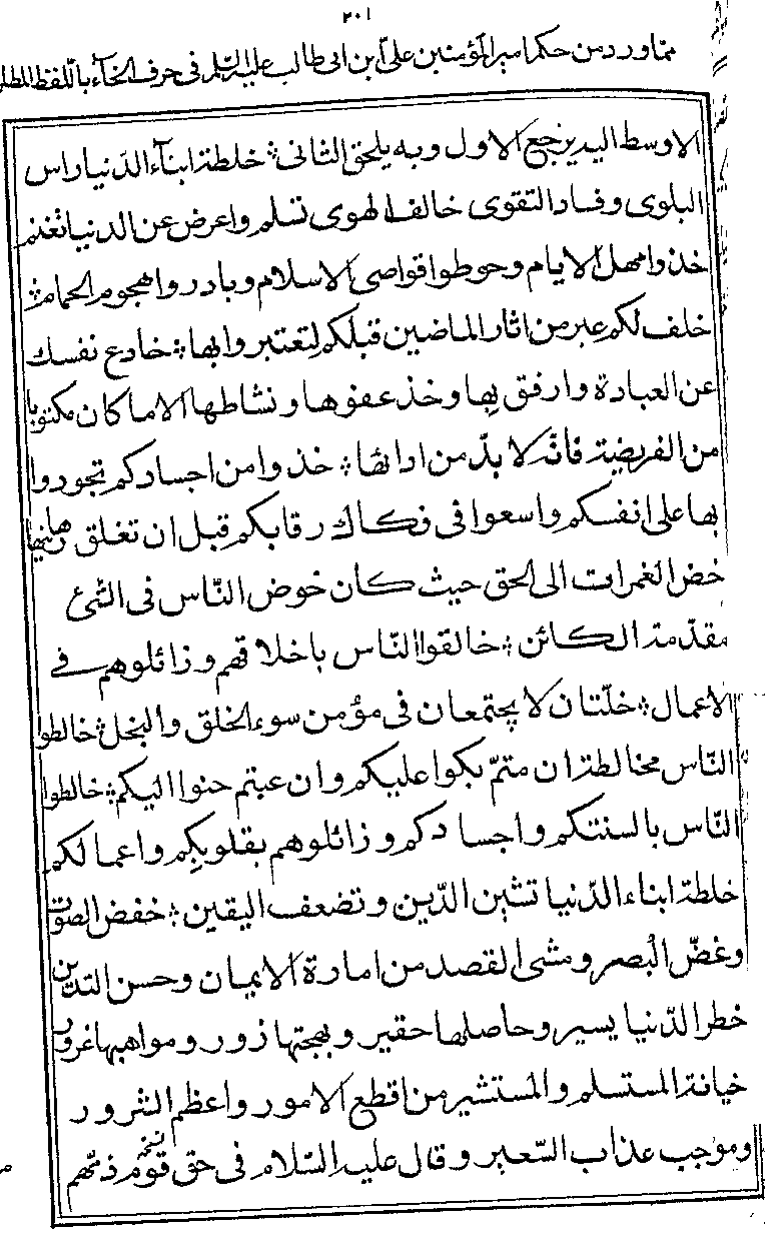 ٢٠١
مما ورد من حكم امير المؤمنين على ابن ابى طالب عليه السلم فى حرف الخآء باللفظ المطل
الاوسط اليه يرجع الاول وبه يلحق الثانى؛ خلطة ابنآء الدّنيا راس
البلوى وفساد التقوى خالف الهوى تسلم واعرض عن الدنيا تغنم
خذوا مهل الايام وحوطوا قواصى الاسلام وبادروا هجوم الحمام؛
خلف لكم عبر من اثار الماضين قبلكم لتعتبروا بها؛ خادع نفسك
عن العبادة وارفق بها وخذ عفوها ونشاطها الا ما كان مكتوبا
من الفريضة فانّه لا بدّ من ادائها؛ خذوا من اجسادكم تجودوا
بها على انفسكم واسعوا فى فكاك رقابكم قبل ان تغلق رهاينها
خض الغمرات الى الحق حيث كان خوض النّاس فى الشئ
مقدّمة الكائن؛ خالقوا النّاس باخلاقهم وزائلوهم فى
الاعمال؛ خلّتان لا يجتمعان فى مؤمن سوء الخلق والبخل؛ خالطوا
النّاس مخالطة ان متمّ بكوا عليكم وان غبتم حنوا اليكم؛ خالطوا
النّاس بالسنتكم واجسادكم وزائلوهم بقلوبكم واعمالكم
خلطة ابناء الدّنيا تشين الدّين وتضعف اليقين؛ خفض الصوت
وغضّ البصر ومشى القصد من امارة الايمان وحسن التدين
خطر الدّنيا يسير وحاصلها حقير وبهجتها زور ومواهبها غرور
خيانة المستسلم والمستشير من اقطع الامور واعظم الشرور
وموجب عذاب السّعير وقال عليه السّلام فى حق قوم ذمّهم